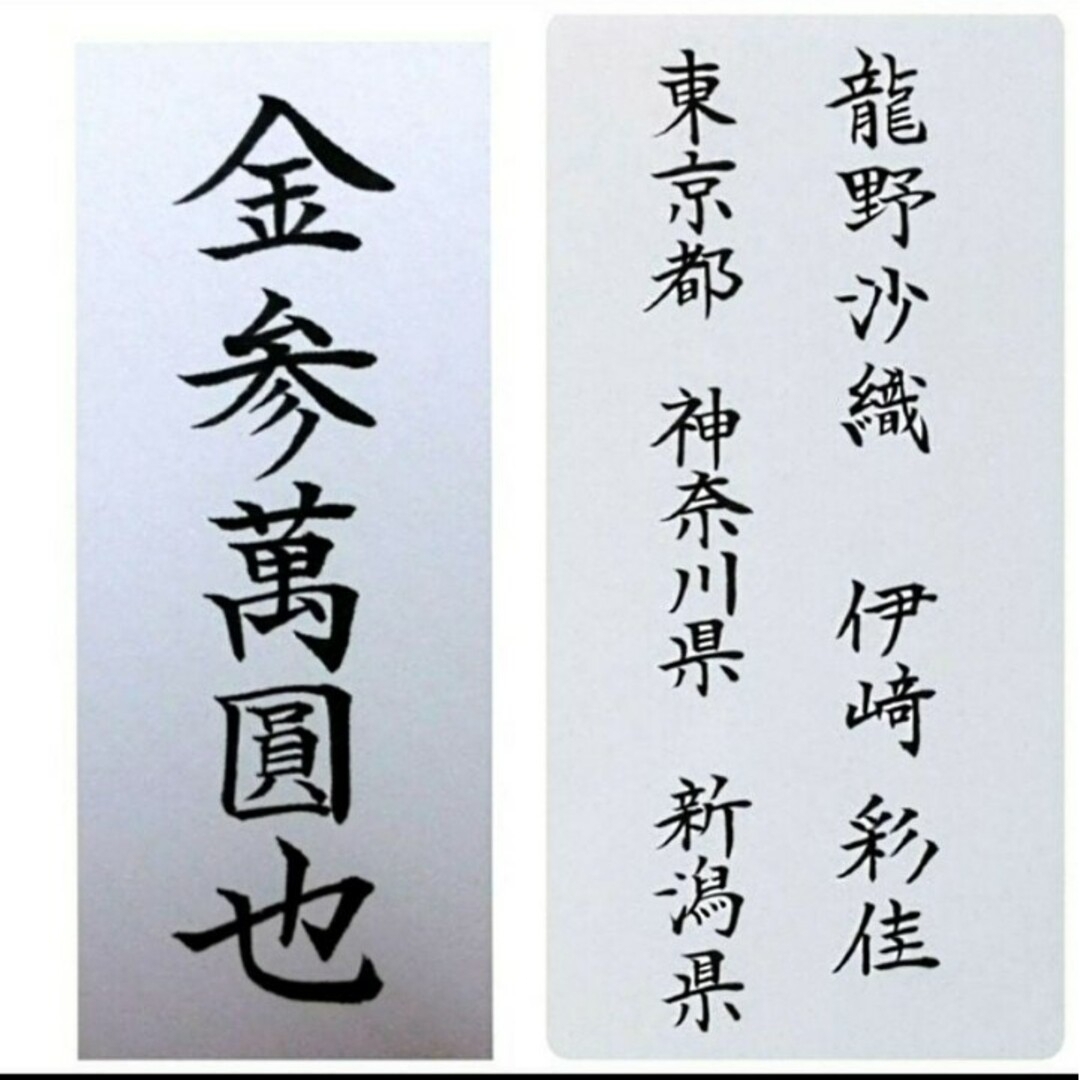 金参萬圓也
龍野沙織　伊﨑彩佳
東京都　神奈川県　新潟県